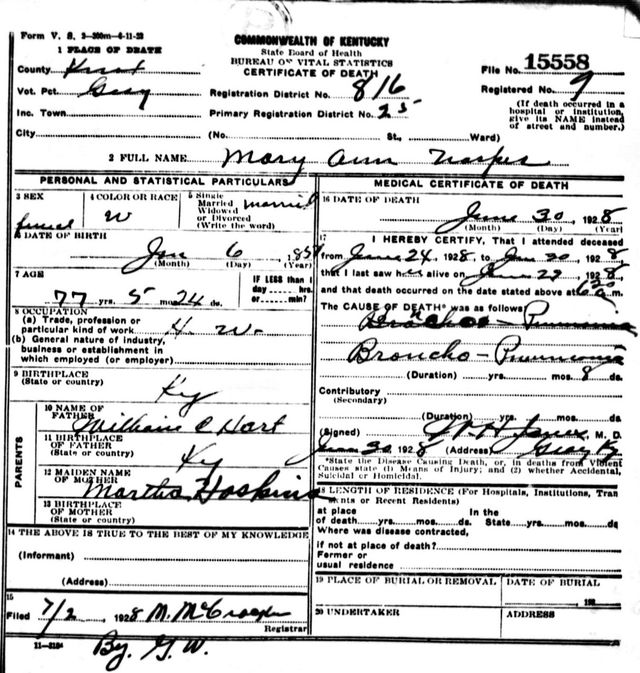 Form V. S. 2-300m-4-11-23
COMMONWEALTH OF KENTUCKY
State Board of Health
BUREAU OF VITAL STATISTICS
CERTIFICATE OF DEATH
1 PLACE OF DEATH
County Knox
Vot. Pct. Gray
Inc. Town
City (No. St., Ward)
Registration District No. 816
Primary Registration District No. 25
File No. 15558
Registered No. 9
(If death occurred in a
hospital or institution,
give its NAME instead
of street and number.)
2 FULL NAME Mary Ann
PERSONAL AND STATISTICAL PARTICULARS
3 SEX
4 COLOR OR RACE
W
5 Single
Married
Widowed
or Divorced
(Write the word)
married
6 DATE OF BIRTH
Jan 6
(Month) (Day) (Year)
7 AGE
77 yrs. 5 mos. 24 ds.
IF LESS than 1
day hrs.
or min.?
8 OCCUPATION
(a) Trade, profession or
particular kind of work H. W.
(b) General nature of industry,
business or establishment in
which employed (or employer)
9 BIRTHPLACE
(State or country) Ky
PARENTS
10 NAME OF
FATHER William C Hart
11 BIRTHPLACE
OF FATHER
(State or country) Ky
12 MAIDEN NAME
OF MOTHER Martha Hoskins
13 BIRTHPLACE
OF MOTHER
(State or country)
14 THE ABOVE IS TRUE TO THE BEST OF MY KNOWLEDGE
(Informant)
(Address)
15
Filed 7/2 1928 M.
Registrar
11-3184
By. G. W.
MEDICAL CERTIFICATE OF DEATH
16 DATE OF DEATH
June 30, 1928
(Month) (Day) (Year)
17 I HEREBY CERTIFY, That I attended deceased
from June 24, 1928, to June 30, 1928,
that I last saw h alive on June 29, 1928,
and that death occurred on the date stated above at 6 a.m.
The CAUSE OF DEATH* was as follows:
Broncho - Pneumonia
Broncho - Pneumonia
(Duration) yrs. mos. 8 ds.
Contributory
(Secondary)
(Duration) yrs. mos. ds
(Signed) W H Jones M. D.
June 30, 1928 (Address) Gray Ky
*State the Disease Causing Death, or, in deaths from Violent
Causes state (1) Means of Injury; and (2) whether Accidental,
Suicidal or Homicidal.
18 LENGTH OF RESIDENCE (For Hospitals, Institutions, Tran
ents or Recent Residents)
at place In the
of death yrs. mos. ds. State yrs. mos. ds
Where was disease contracted,
if not at place of death?
Former or
usual residence
19 PLACE OF BURIAL OR REMOVAL
DATE OF BURIAL
192
20 UNDERTAKER
ADDRESS